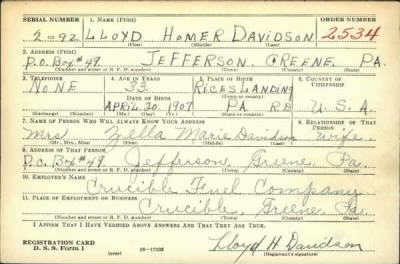 SERIAL NUMBER 1. NAME (Print) ORDER NUMBER
2092 LLOYD HOMER DAVIDSON 2534
(First) (Middle) (Last)
2. ADDRESS (Print)
P.O. Box #49. JEFFERSON. GREENE. PA.
(Number and street or R. F. D. number) (Town) (County) (State)
3. TELEPHONE 4. AGE IN YEARS 5. PLACE OF BIRTH 6. COUNTRY OF CITIZENSHIP
NONE 33. RICES LANDING
DATE OF BIRTH (Town or county)
APRIL 20. 1907 PA. R.D U.S.A.
(Exchange) (Number) (Mo.) (Day) (Yr.) (State or country)
7. NAME OF PERSON WHO WILL ALWAYS KNOW YOUR ADDRESS 8. RELATIONSHIP OF THAT PERSON
Mrs. Zella Marie Davidson wife.
(Mr., Mrs., Miss) (First) (Middle) (Last)
9. ADDRESS OF THAT PERSON
P.O. Box #49. Jefferson, Greene, Pa.
(Number and street or R. F. D. number) (Town) (County) (State)
10. EMPLOYER'S NAME
Crucible Fuel Company
11. PLACE OF EMPLOYMENT OR BUSINESS
Crucible, Greene, Pa.
(Number and street or R. F. D. number) (Town) (County) (State)
I AFFIRM THAT I HAVE VERIFIED ABOVE ANSWERS AND THAT THEY ARE TRUE.
REGISTRATION CARD
D. S. S. Form 1 (over) 16—17105 Lloyd H Davidson
(Registrant's signature)